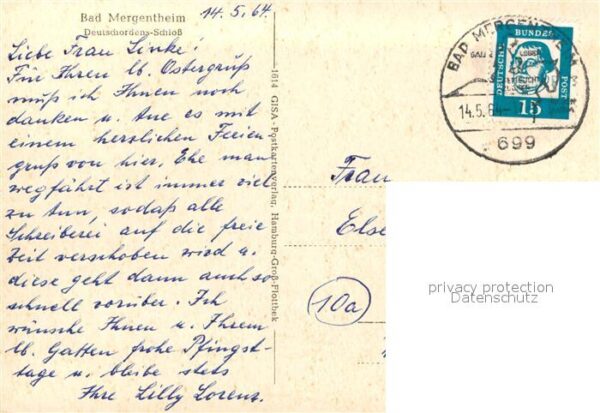 Bad Mergentheim
Deutschordens-Schloß
14.5.64.
Liebe Frau Linke!
Für Ihren lb. Ostergruß
muß ich Ihnen noch
danken u. tue es mit
einem herzlichen Ferien-
gruß von hier. Ehe man
wegfährt ist immer viel
zu tun, sodaß alle
Schreiberei auf die freie
Zeit verschoben wird u.
diese geht dann auch so
schnell vorüber. Ich
wünsche Ihnen u. Ihrem
lb. Gatten frohe Pfingst-
tage u. bleibe stets
Ihre Lilly Lorenz.
1614 GISA-Postkartenverlag, Hamburg-Groß-Flottbek
BAD MERGENTHEIM
14.5.64
699
DEUTSCHE BUNDESPOST
15
Frau
Else
10a
privacy protection
Datenschutz